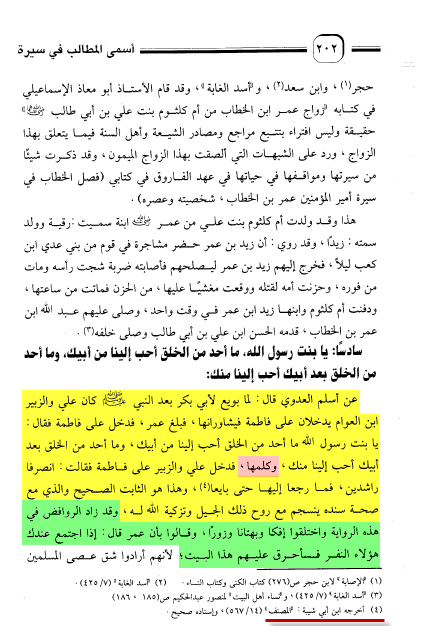 ٢٠٢ أسمى المطالب في سيرة
حجر(١)، وابن سعد(٢)، و«أسد الغابة»، وقد قام الأستاذ أبو معاذ الإسماعيلي
في كتابه «زواج عمر ابن الخطاب من أم كلثوم بنت علي بن أبي طالب ﷺ»
حقيقة وليس افتراء بتتبع مراجع ومصادر الشيعة وأهل السنة فيما يتعلق بهذا
الزواج، ورد على الشبهات التي ألصقت بهذا الزواج الميمون، وقد ذكرت شيئًا
من سيرتها ومواقفها في حياتها في عهد الفاروق في كتابي (فصل الخطاب في
سيرة أمير المؤمنين عمر بن الخطاب، شخصيته وعصره).
هذا وقد ولدت أم كلثوم بنت علي من عمر ﷺ ابنة سميت: رقية وولد
سمته: زيدًا، وقد روي: أن زيد بن عمر حضر مشاجرة في قوم من بني عدي ابن
كعب ليلاً، فخرج إليهم زيد بن عمر ليصلحهم فأصابته ضربة شجت رأسه ومات
من فوره، وحزنت أمه لقتله ووقعت مغشيًا عليها، من الحزن فماتت من ساعتها،
ودفنت أم كلثوم وابنها زيد ابن عمر في وقت واحد، وصلى عليهم عبد الله ابن
عمر بن الخطاب، قدمه الحسن ابن علي بن أبي طالب وصلى خلفه(٣).
سادسًا: يا بنت رسول الله، ما أحد من الخلق أحب إلينا من أبيك، وما أحد
من الخلق بعد أبيك أحب إلينا منك:
عن أسلم العدوي قال: لما بويع لأبي بكر بعد النبي ﷺ كان علي والزبير
ابن العوام يدخلان على فاطمة فيشاورانها، فبلغ عمر، فدخل على فاطمة فقال:
يا بنت رسول الله ما أحد من الخلق أحب إلينا من أبيك، وما أحد من الخلق بعد
أبيك أحب إلينا منك، وكلمها، فدخل علي والزبير على فاطمة فقالت: انصرفا
راشدين، فما رجعا إليها حتى بايعا(٤)، وهذا هو الثابت الصحيح والذي مع
صحة سنده ينسجم مع روح ذلك الجيل وتزكية الله له، وقد زاد الروافض في
هذه الرواية واختلقوا إفكا وبهتانا وزورًا، وقالوا بأن عمر قال: إذا اجتمع عندك
هؤلاء النفر فسأحرق عليهم هذا البيت؛ لأنهم أرادوا شق عصى المسلمين
(١) «الإصابة» لابن حجر ص(٢٧٦) كتاب الكنى وكتاب النساء. (٢) «أسد الغابة» (٧/ ٤٢٥)
(٣) «أسد الغابة» (٧/ ٤٢٥)، و«نساء أهل البيت» لمنصور عبدالحكيم ص(١٨٥ ، ١٨٦)
(٤) أخرجه ابن أبي شيبة: «المصنف» (١٤/ ٥٦٧)، وإسناده صحيح.